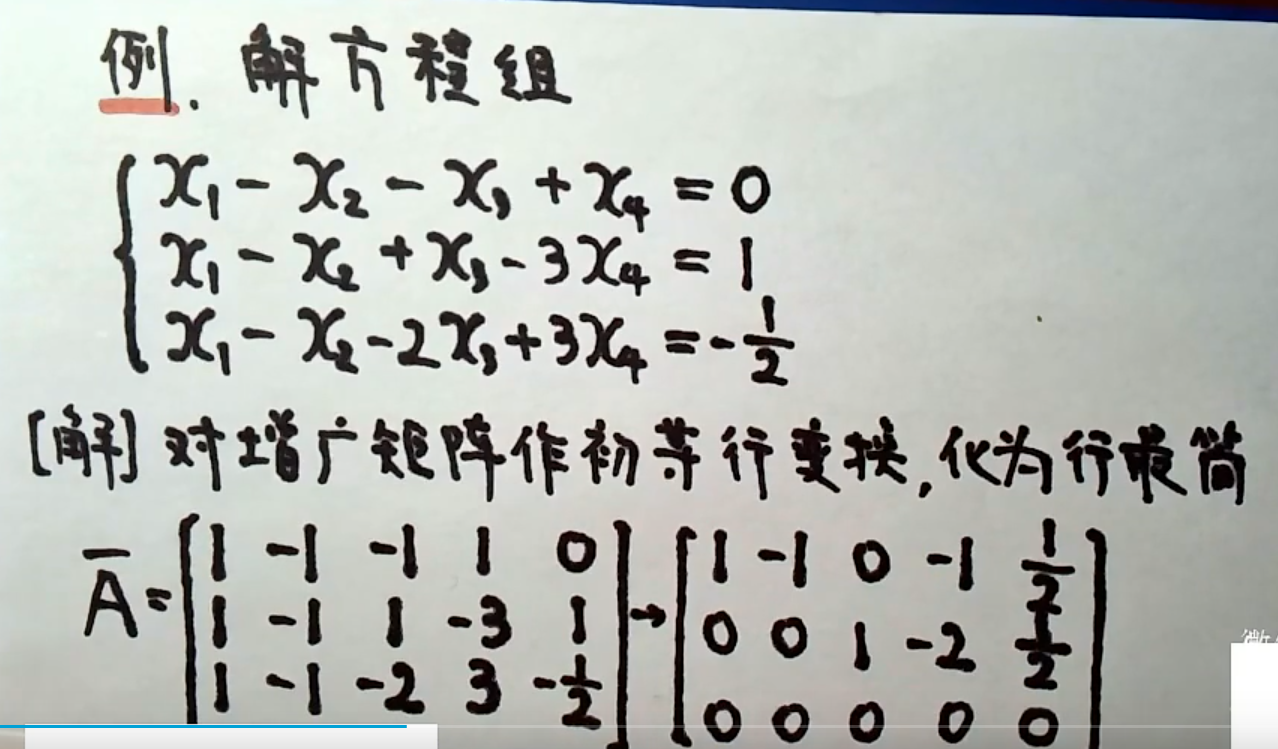 例. 解方程组
x₁ - x₂ - x₃ + x₄ = 0
x₁ - x₂ + x₃ - 3x₄ = 1
x₁ - x₂ - 2x₃ + 3x₄ = -1/2
[解] 对增广矩阵作初等行变换,化为行最简
Ā = [1 -1 -1 1 0] → [1 -1 0 -1 1/2]
[1 -1 1 -3 1] [0 0 1 -2 1/2]
[1 -1 -2 3 -1/2] [0 0 0 0 0]